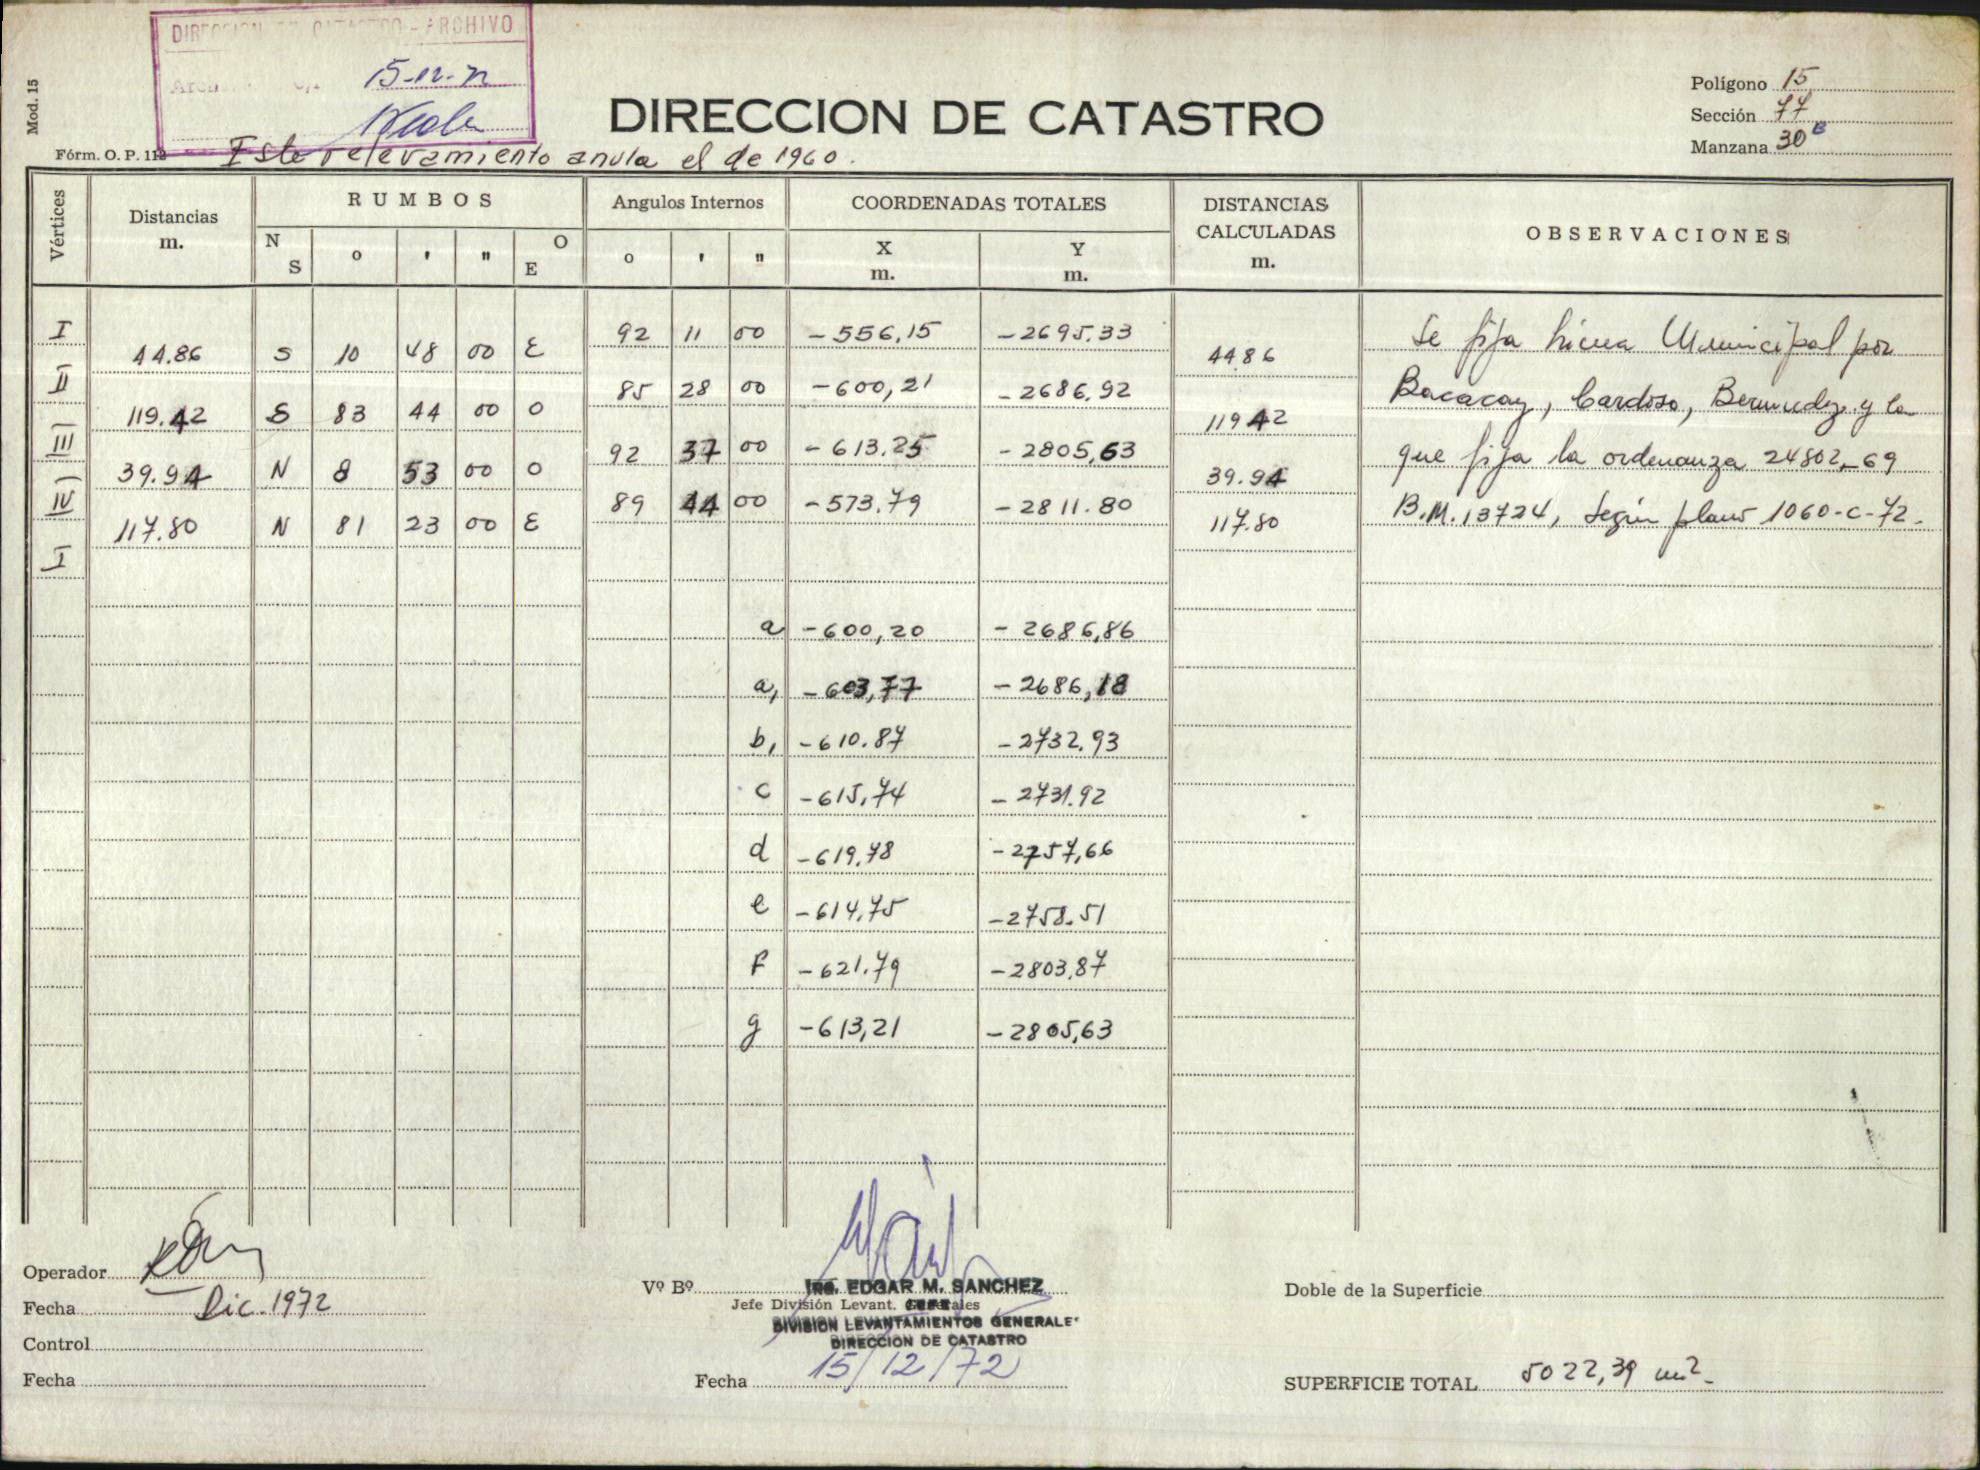 DIRECCION DE CATASTRO - ARCHIVO
15-12-72
Mod. 15
DIRECCION DE CATASTRO
Polígono 15
Sección 77
Manzana 30 B
Fórm. O. P. 112
Este relevamiento anula el de 1960.
Vértices Distancias m. RUMBOS Angulos Internos COORDENADAS TOTALES DISTANCIAS CALCULADAS m. OBSERVACIONES
N S o ' " O E o ' " X m. Y m.
I 92 11 00 -556,15 -2695.33
44.86 S 10 48 00 E 44 86
II 85 28 00 -600,21 -2686,92
119.42 S 83 44 00 O 119 42
III 92 37 00 -613.25 -2805,63
39.94 N 8 53 00 O 39.94
IV 89 44 00 -573.79 -2811.80
117.80 N 81 23 00 E 117.80
I
Se fija línea Municipal por
Bacacay, Cardoso, Bermudez y la
que fija la ordenanza 24802-69
B.M. 13724, según plano 1060-c-72.
a -600,20 -2686,86
a, -603,77 -2686,18
b, -610.87 -2732.93
c -615,74 -2731.92
d -619.78 -2757,66
e -614,75 -2758.51
f -621.79 -2803,87
g -613,21 -2805,63
Operador
Fecha Dic. 1972
Control
Fecha
Vº Bº
Ing. EDGAR M. SANCHEZ
Jefe División Levant. Generales
DIVISION LEVANTAMIENTOS GENERALES
DIRECCION DE CATASTRO
Fecha 15/12/72
Doble de la Superficie
SUPERFICIE TOTAL 5022,39 m2.